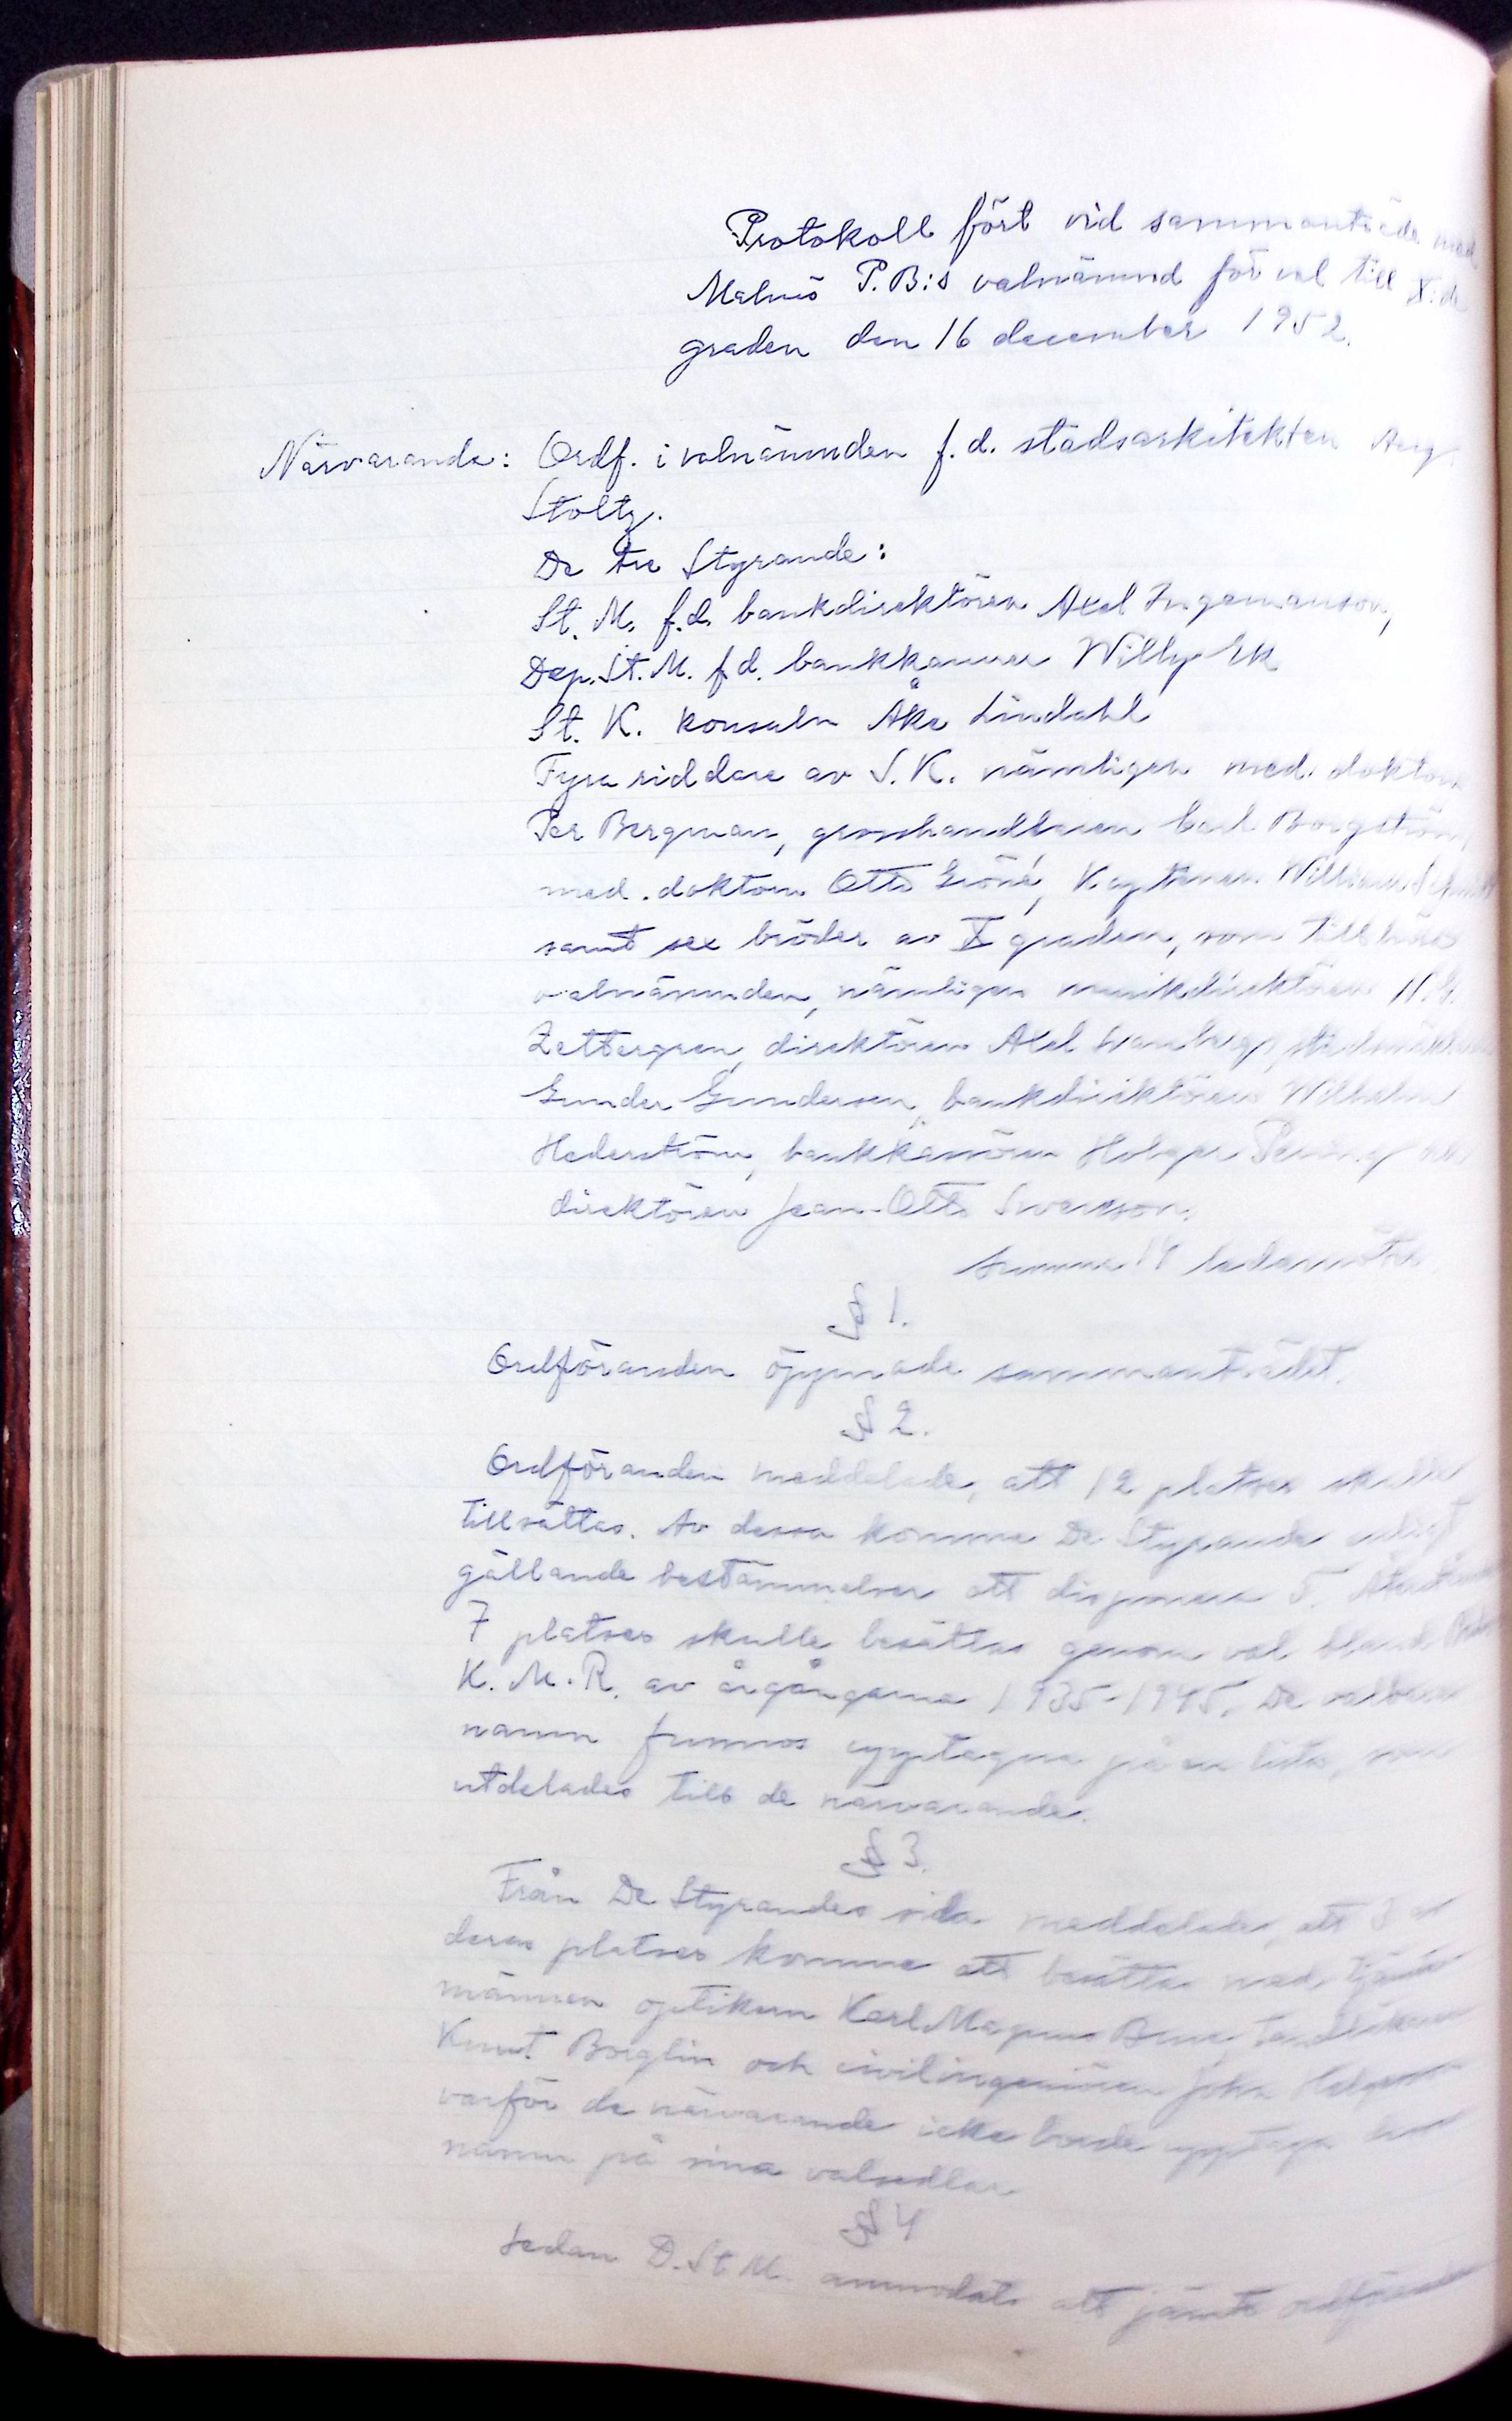 Protokoll fört vid sammanträde med
Malmö P.B:s valnämnd för val till X:de
graden den 16 december 1952.
Närvarande: Ordf. i valnämnden f.d. stadsarkitekten Aug.
Stoltz.
De tre Styrande:
St. M. f.d. bankdirektören Axel Ingemanson,
Dep. St. M. f.d. bankkamrer Willy Ek
St. K. konsuln Åke Lindahl
Fyra riddare av S.K. nämligen med. doktorn
Per Bergman, grosshandlaren Carl Borgström,
med. doktorn Otto Gröné, Kaptenen William
samt sex bröder av X graden, som tillhöra
valnämnden, nämligen musikdirektören H.G.
Zettergren, direktören Axel
Gunder Gundersen, bankdirektören Wilhelm
Hederström, bankkassören Holger
direktören Jean-Otto Svensson.
Summa 14 ledamöter
§ 1.
Ordföranden öppnade sammanträdet.
§ 2.
Ordföranden meddelade, att 12 platser skulle
tillsättas. Av dessa komme De Styrande enligt
gällande bestämmelser att disponera 5. Återstående
7 platser skulle besättas genom val bland
K. M. R. av årgångarna 1935-1945. De valbaras
namn funnos upptagna på en lista, som
utdelades till de närvarande.
§ 3.
Från De Styrandes sida meddelades, att 3 av
deras platser komme att besättas med tjänste-
männen optikern Karl Magnus tandläkaren
Knut Borglin och civilingenjören John
varför de närvarande icke borde upptaga
namn på sina valsedlar
§ 4
Sedan D. St. M. anmodats att jämte ordföranden